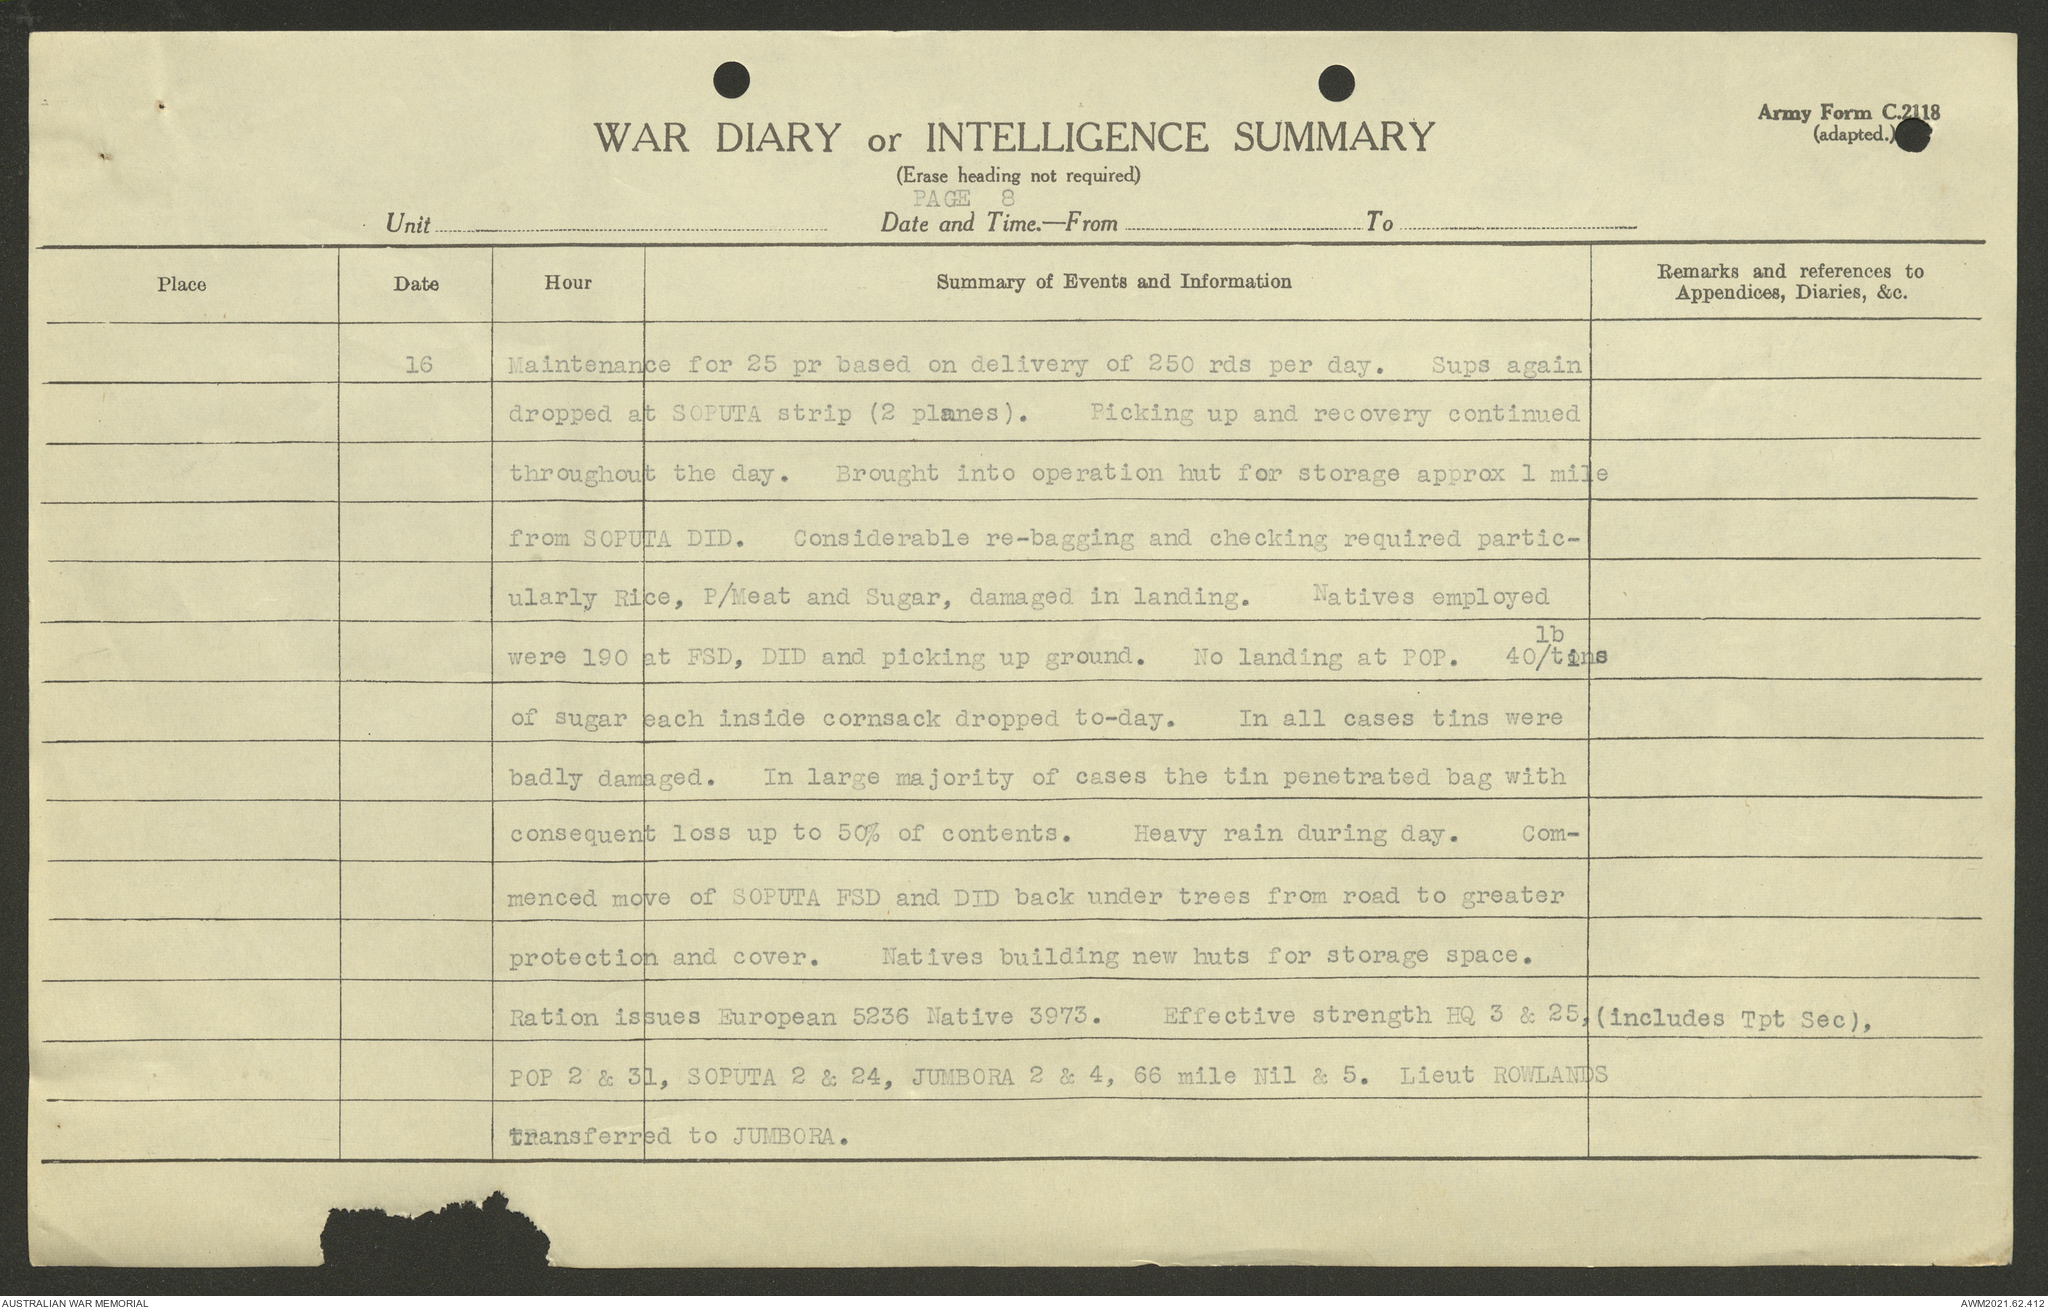 Army Form C.2118
(adapted.)
WAR DIARY or INTELLIGENCE SUMMARY
(Erase heading not required)
PAGE 8
Unit Date and Time.—From To
Place Date Hour Summary of Events and Information Remarks and references to
Appendices, Diaries, &c.
16 Maintenance for 25 pr based on delivery of 250 rds per day. Sups again
dropped at SOPUTA strip (2 planes). Picking up and recovery continued
throughout the day. Brought into operation hut for storage approx 1 mile
from SOPUTA DID. Considerable re-bagging and checking required partic-
ularly Rice, P/Meat and Sugar, damaged in landing. Natives employed
lb
were 190 at FSD, DID and picking up ground. No landing at POP. 40/tins
of sugar each inside cornsack dropped to-day. In all cases tins were
badly damaged. In large majority of cases the tin penetrated bag with
consequent loss up to 50% of contents. Heavy rain during day. Com-
menced move of SOPUTA FSD and DID back under trees from road to greater
protection and cover. Natives building new huts for storage space.
Ration issues European 5236 Native 3973. Effective strength HQ 3 & 25,(includes Tpt Sec),
POP 2 & 31, SOPUTA 2 & 24, JUMBORA 2 & 4, 66 mile Nil & 5. Lieut ROWLANDS
transferred to JUMBORA.
AUSTRALIAN WAR MEMORIAL AWM2021.62.412